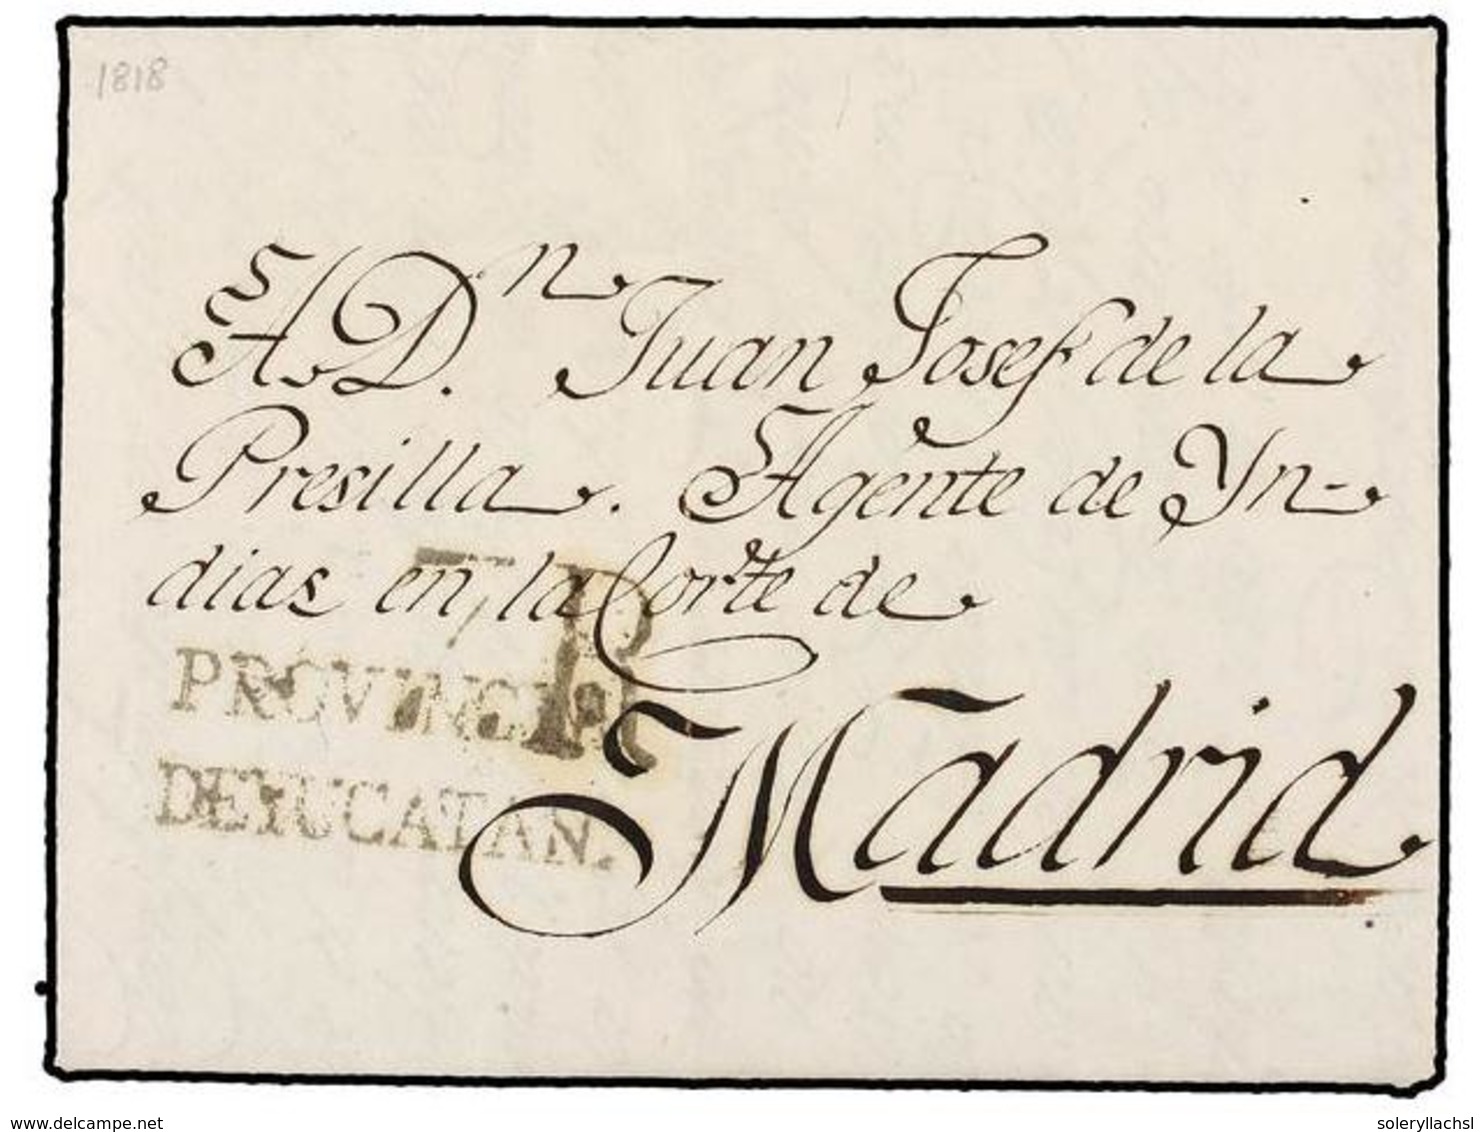 1818
A Dn. Juan Josef de la
Presilla. Agente de Yn-
dias en la Corte de
7R
PROVINCIA
DE YUCATAN.
Madrid
www.delcampe.net
soleryllachsl